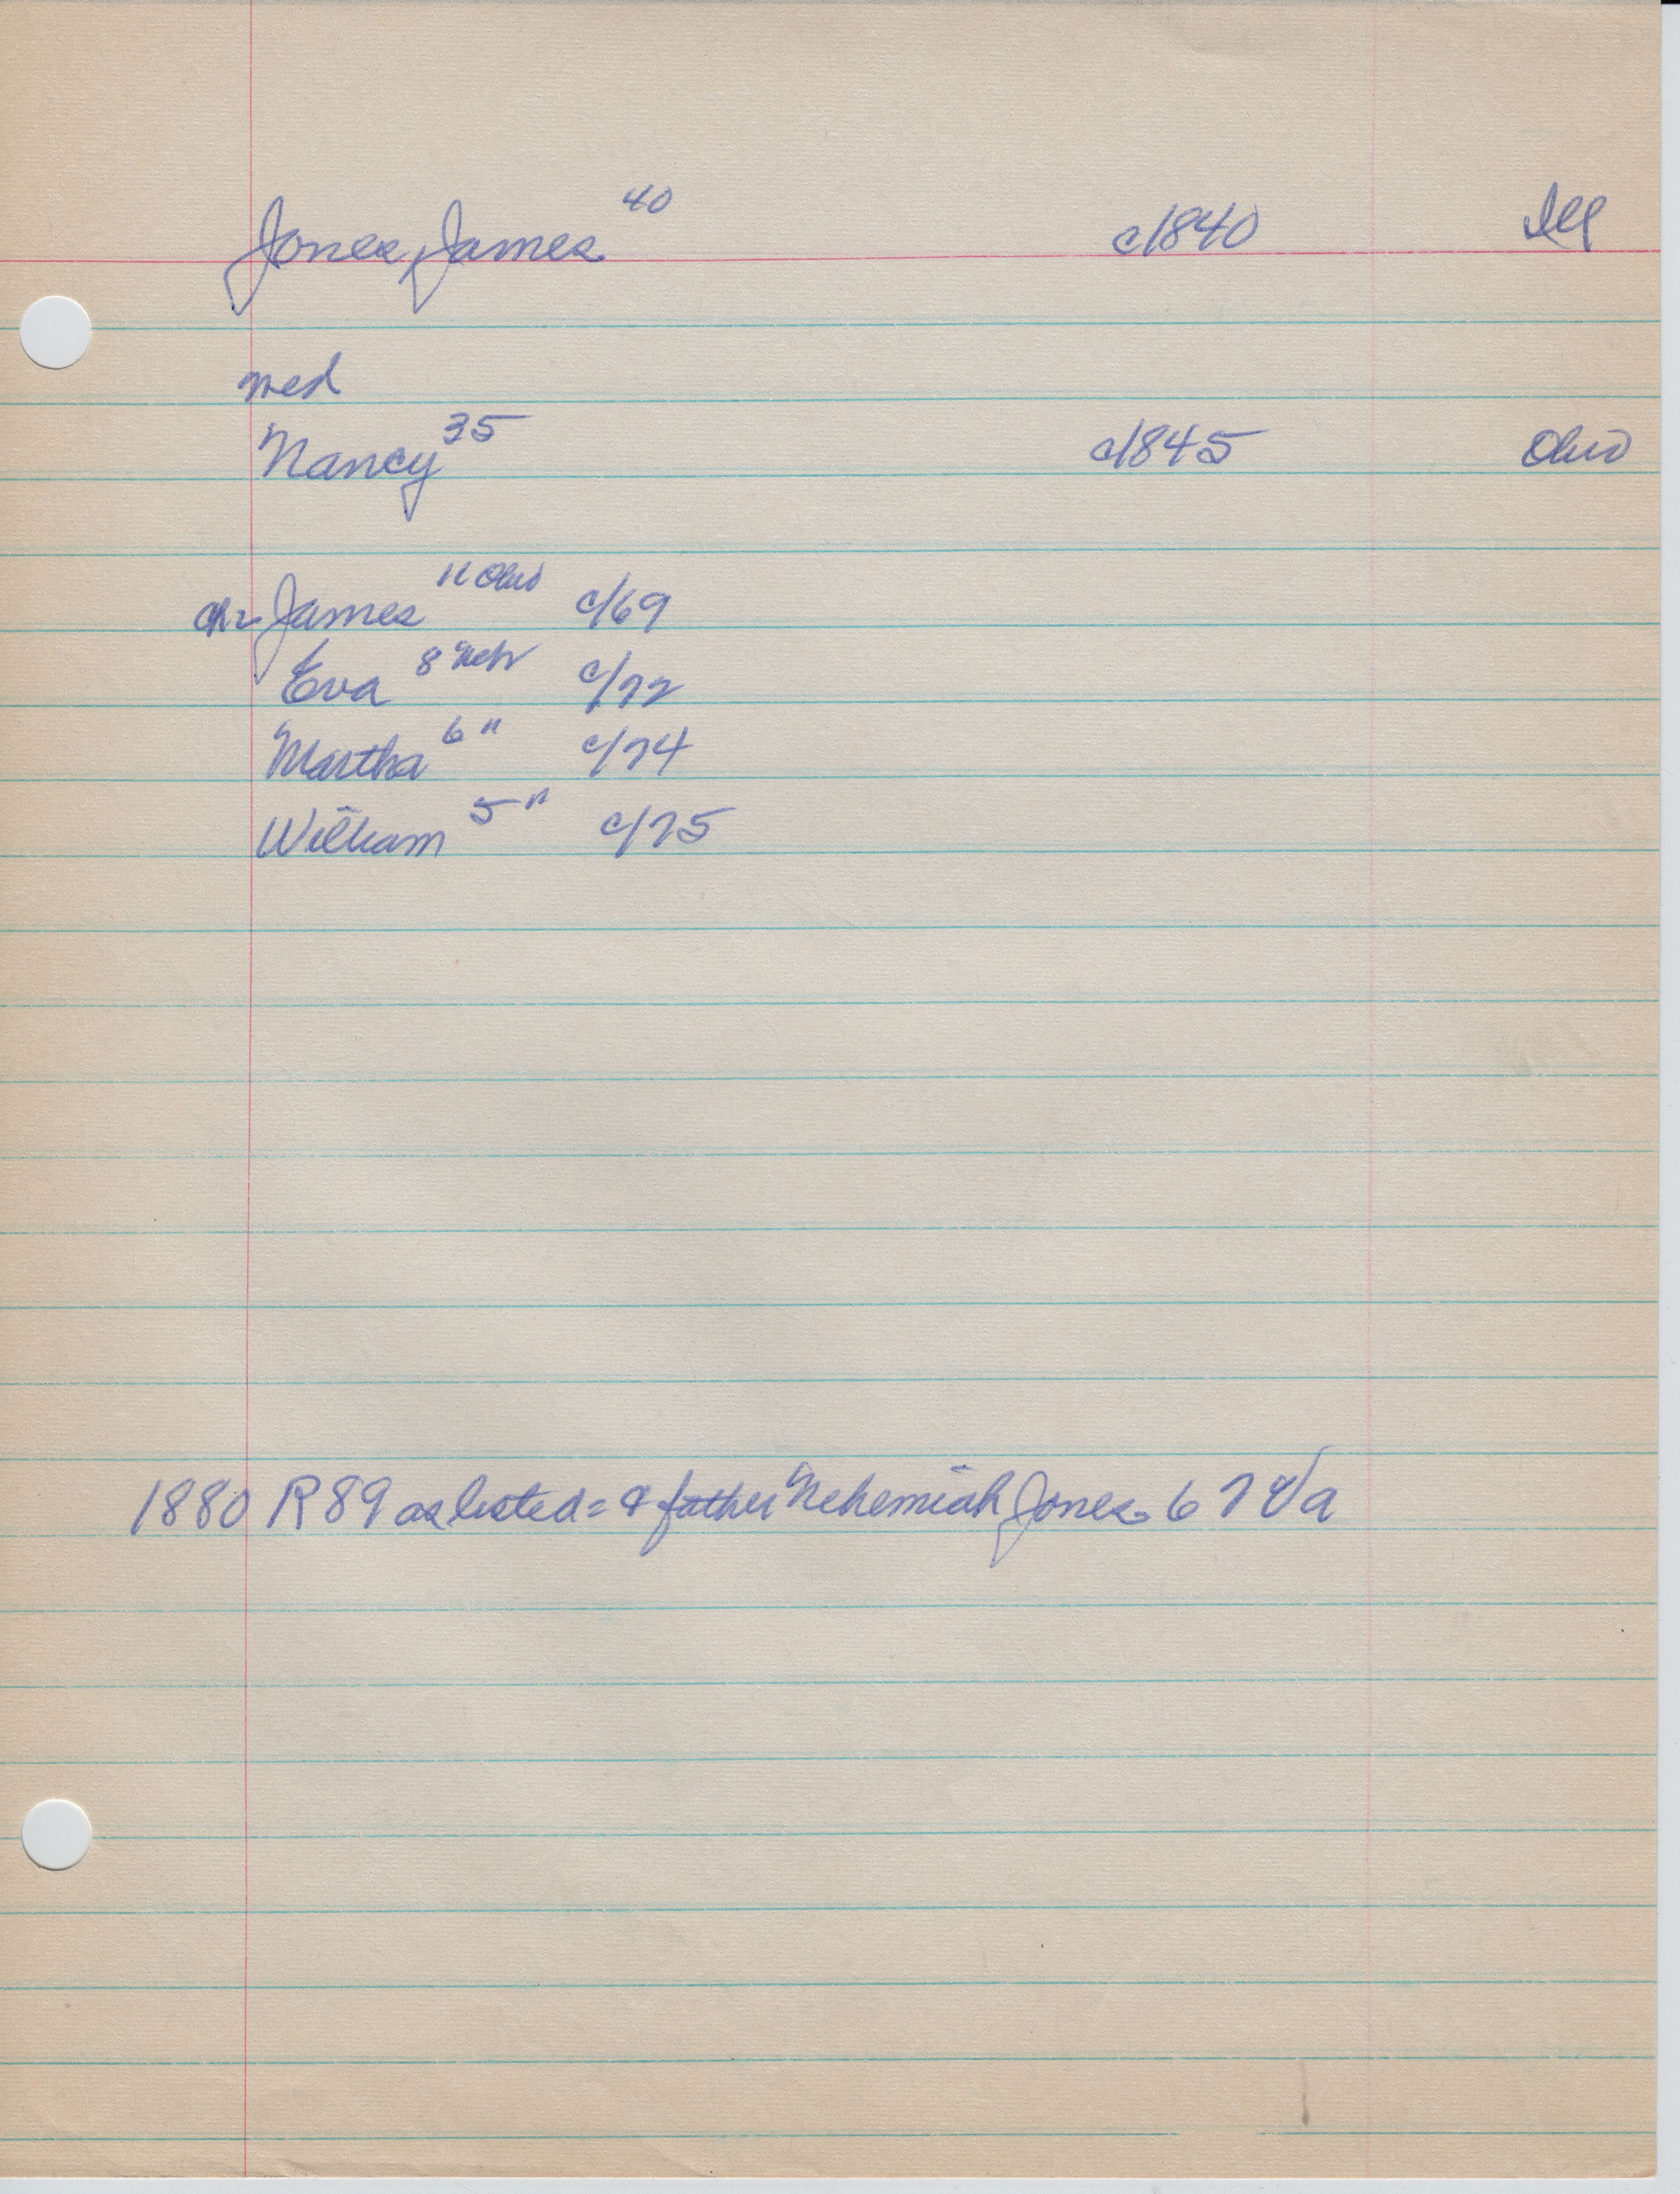 Jones, James 40 c/1840 Ill
med
Nancy 35 c/1845 Ohio
ch = James 11 Ohio c/69
Eva 8 Nebr c/72
Martha 6 " c/74
William 5 " c/75
1880 R 89 as listed = & father Nehemiah Jones 67 Va